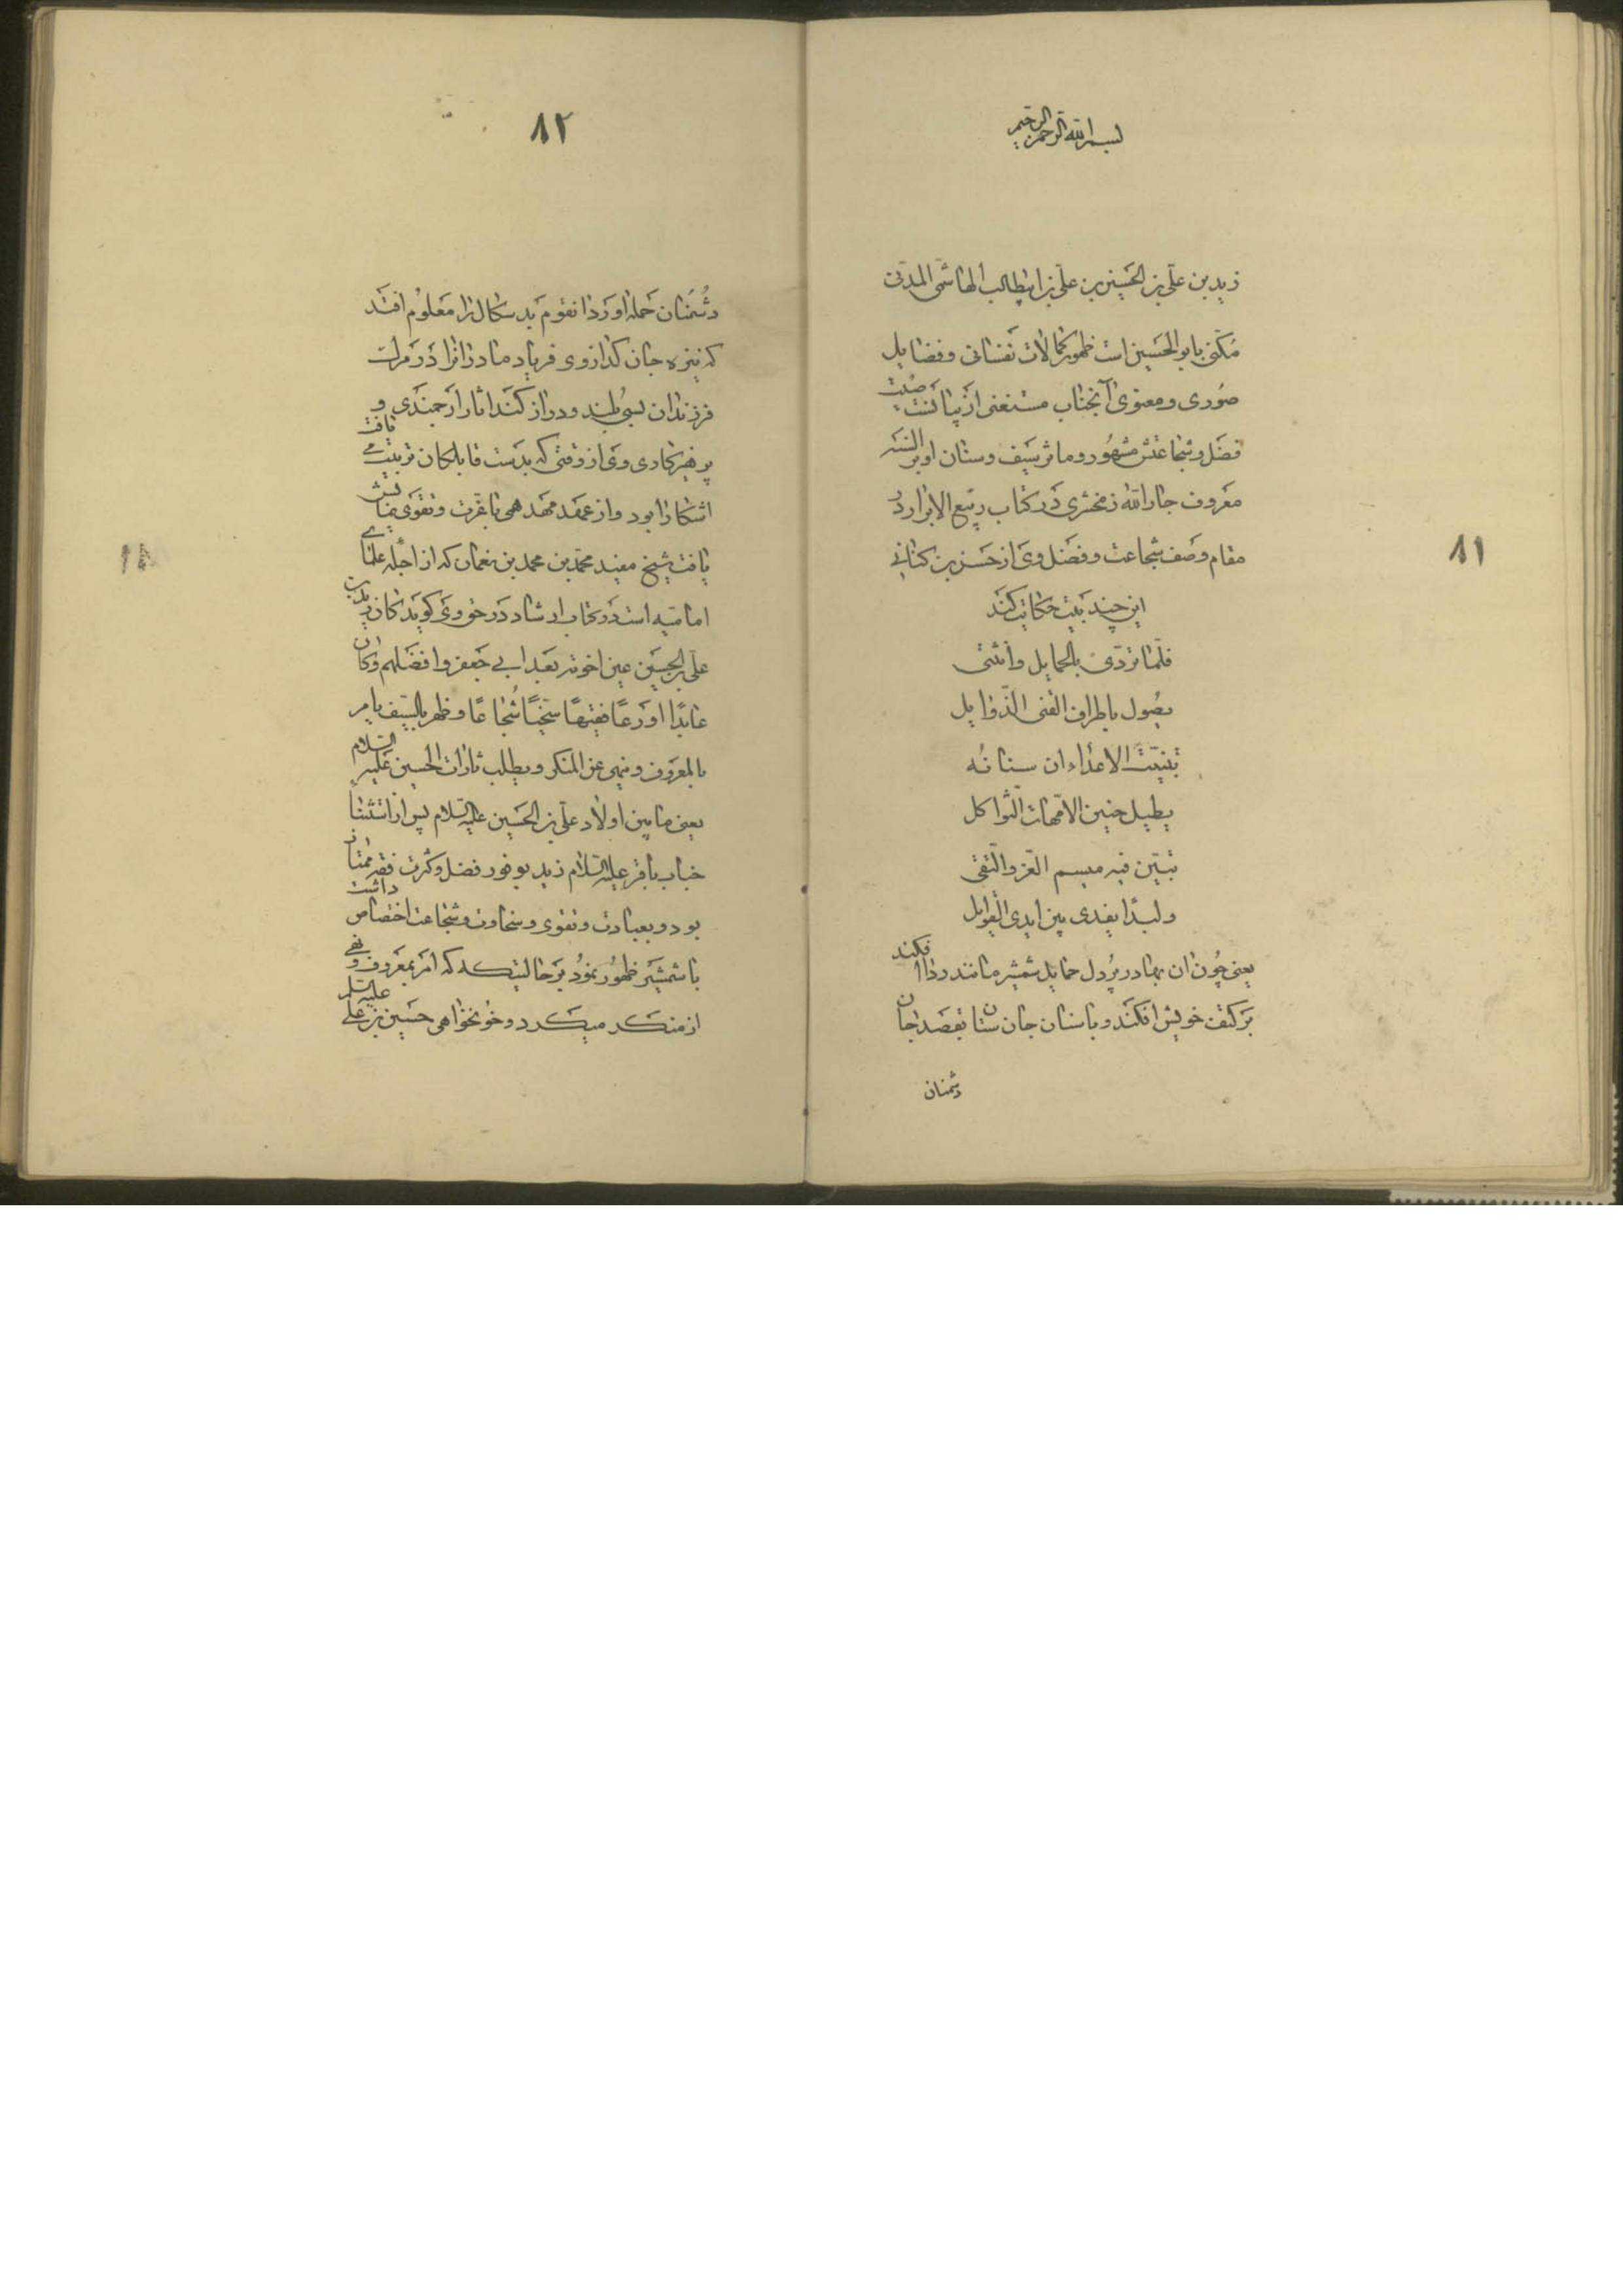 بسم الله الرحمن الرحیم
زید بن علی بن الحسین بن علی بن ابیطالب الهاشمی المدنی
مکنی بابو الحسین است ظهور کمالات نفسانی و فضایل
صوری و معنوی آنجناب مستغنی از بیانست صیت
فضل و شجاعتش مشهور و ماثر سیف و سنان او بر السنه
معروف جار الله زمخشری در کتاب ربیع الابرار در
مقام وصف شجاعت و فضل وی از حسن بن کنانی
این چند بیت حکایت کند
فلما تردی بالحمایل وانثنی
یصول باطراف القنی الذوابل
تبینت الاعداء ان سنانه
یطیل حنین الامهات الثواکل
تبین فیه میسم العز والتقی
ولیدا یفدی بین ایدی القوابل
یعنی چون ان بهادر پر دل حمایل شمشیر مانند ردا فکند
بر کتف خویش افکند و با سنان جان ستان بقصد جان
دشمنان
٨١
٨٢
دشمنان حمله اورد انقوم بد سکال را معلوم افتد
که نیزه جان کذار وی فریاد مادرانرا در مرک
فرزندان بسی بلند و دراز کند اثار ارجمندی و
پرهیزکاری وی از وقتی که بدست قابلکان تربیت می یافت
اشکارا بود و از عهد مهد همی با عزت و تقوی
یافت شیخ مفید محمد بن محمد بن نعمان که از اجله علمای
امامیه است در کتاب ارشاد در حق وی کوید کان زید بن
علی بن الحسین عین اخوته بعد ابی جعفر وافضلهم وکان
عابدا ورعا فقیها سخیا شجاعا وظهر بالسیف یامر
بالمعروف وینهی عن المنکر ویطلب ثارات الحسین علیه السلام
یعنی مابین اولاد علی بن الحسین علیه السلام پس از استثنا
جناب باقر علیه السلام زید بوفور فضل و کثرت فقه ممتاز
بود و بعبادت و تقوی و سخاوت و شجاعت اختصاص داشت
با شمشیر ظهور نمود بر حالیتکه که امر بمعروف و نهی
از منکر میکرد و خونخواهی حسین بن علی علیه السلم